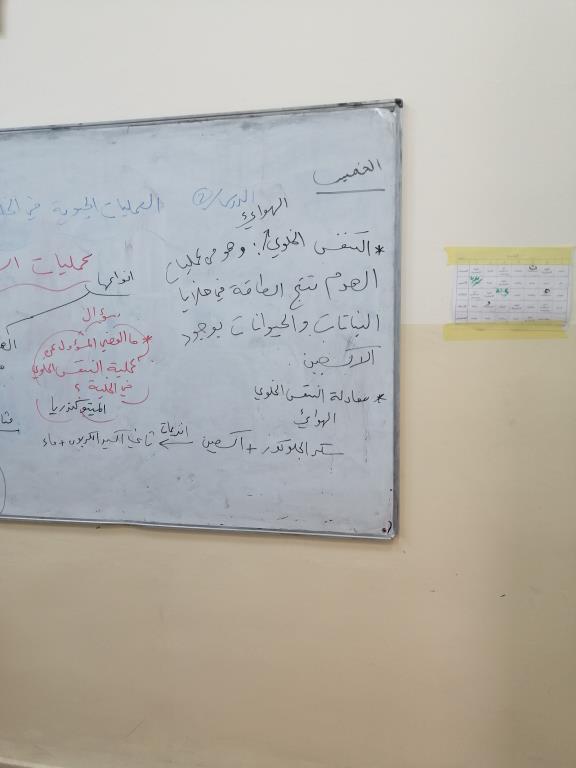 الخميس
الدرس (2) العمليات الحيوية في
الهوائي
* التنفس الخلوي: وهو من عمليات
الهدم تنتج الطاقة في خلايا
النباتات والحيوانات بوجود
الاكسجين.
* معادلة التنفس الخلوي
الهوائي
سكر الجلوكوز + اكسجين ← انزيمات ثاني اكسيد الكربون + ماء
عمليات
انواعها
سؤال
* ما العضي المسؤول عن
عملية التنفس الخلوي
في الخلية ؟
الميتوكندريا